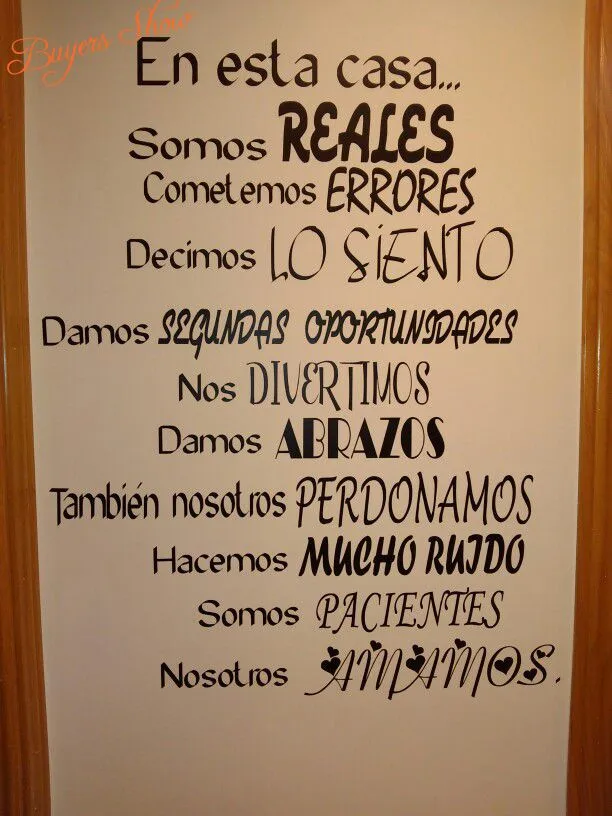 Buyers Show
En esta casa...
Somos REALES
Cometemos ERRORES
Decimos LO SiENTO
Damos SEGUNDAS OPORTUNIDADES
Nos DIVERTIMOS
Damos ABRAZOS
También nosotros PERDONAMOS
Hacemos MUCHO RUIDO
Somos PACIENTES
Nosotros AMAMOS.